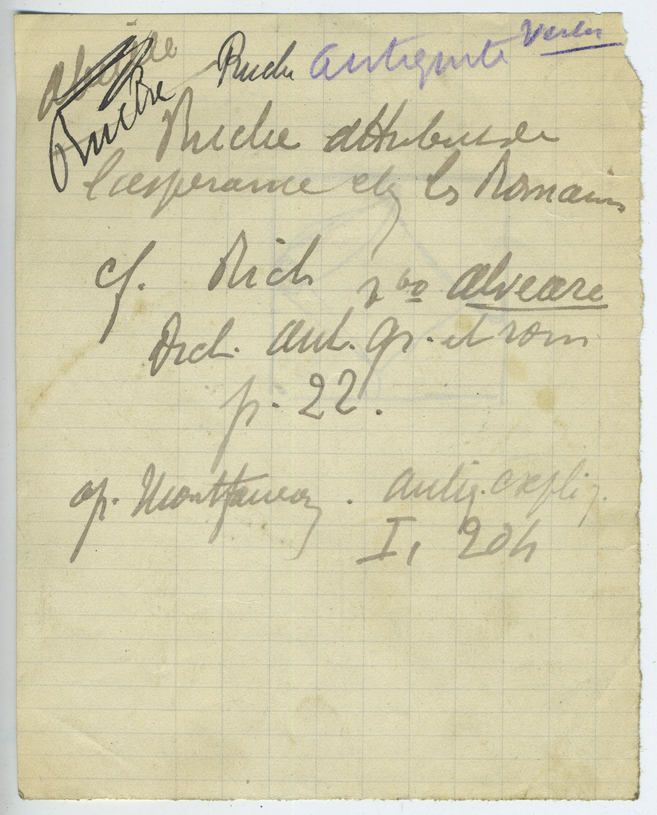 Ruche Antiquité Verlu
Ruche
Ruche attribut de
l'esperance chez les Romains
cf. Rich vbo alveare
Dict. ant. gr. et rom
p. 22.
ap. Montfaucon . antiq. expliq.
I, 204